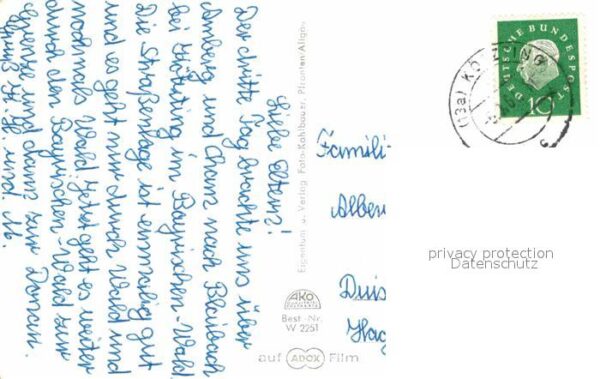 Liebe Eltern!
Der dritte Tag brachte uns über
Amberg und Cham nach Blaibach
bei Kötzting im Bayrischen-Wald.
Die Straßenlage ist einmalig gut
und es geht nur durch Wald und
nochmals Wald. Jetzt geht es weiter
durch den Bayrischen-Wald zur
Grenze und dann zur Donau.
Gruß
Eigentum u. Verlag Foto-Kohlbauer, Pfronten-Allgäu
AKO
Best.-Nr.
W 2251
auf ADOX Film
Famili
Alber
Duis
Hag
DEUTSCHE BUNDESPOST
10
(13a) KÖTZTING
privacy protection
Datenschutz